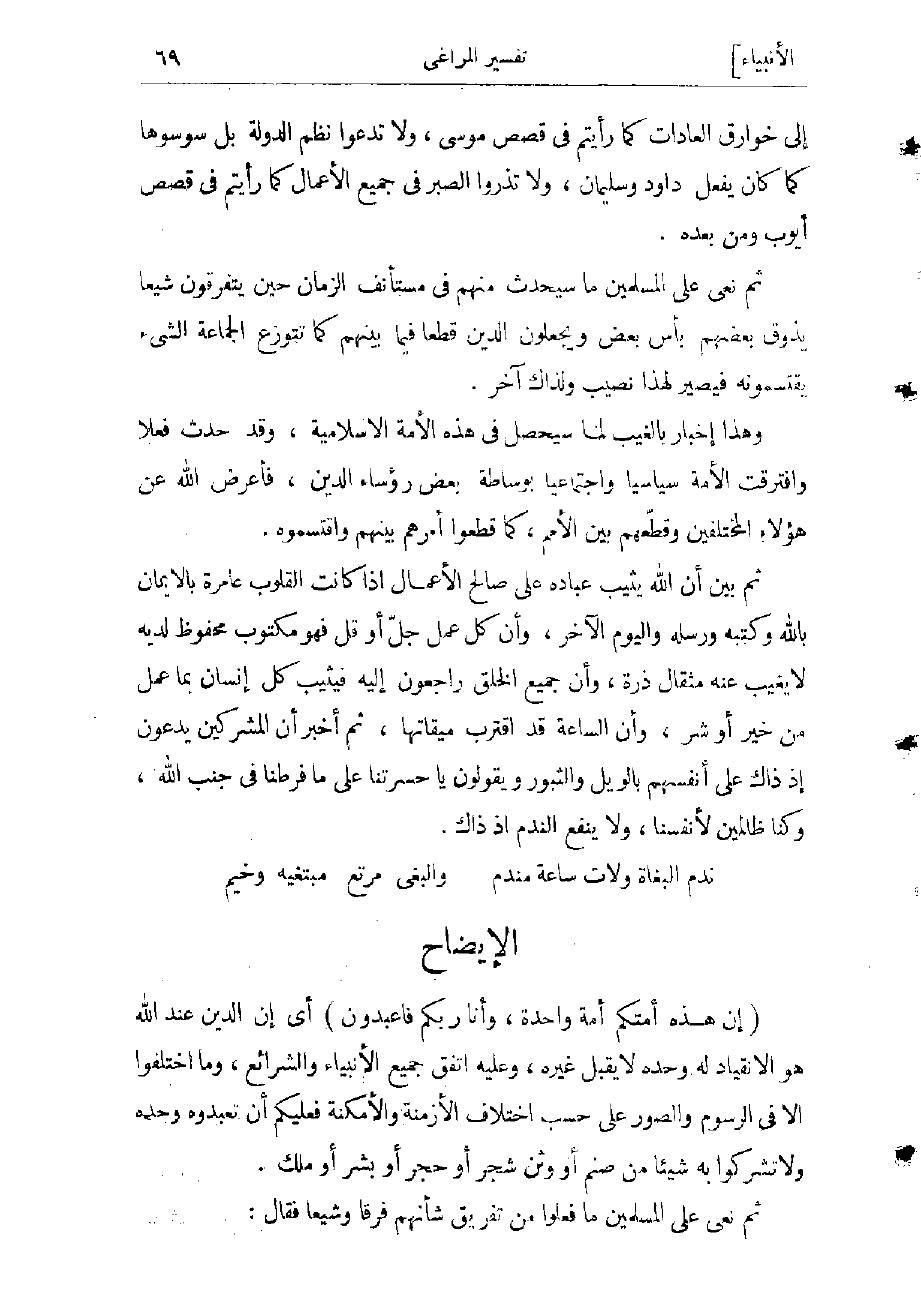 الأنبياء]
تفسير المراغى
٦٩
إلى خوارق العادات كما رأيتم فى قصص موسى ، ولا تدعوا نظم الدولة بل سوسوها
كما كان يفعل داود وسليمان ، ولا تذروا الصبر فى جميع الأعمال كما رأيتم فى قصص
أيوب ومن بعده .
ثم نعى على المسلمين ما سيحدث منهم فى مستأنف الزمان حين يتفرقون شيعا
يذوق بعضهم بأس بعض ويجعلون الدين قطعا فيما بينهم كما تتوزع الجماعة الشىء
يقتسمونه فيصير لهذا نصيب ولذاك آخر .
وهذا إخبار بالغيب لما سيحصل فى هذه الأمة الاسلامية ، وقد حدث فعلا
وافترقت الأمة سياسيا واجتماعيا بوساطة بعض رؤساء الدين ، فأعرض الله عن
هؤلاء المختلفين وقطّعهم بين الأمم ، كما قطعوا أمرهم بينهم واقتسموه .
ثم بين أن الله يثيب عباده على صالح الأعمـال اذا كانت القلوب عامرة بالايمان
بالله وكتبه ورسله واليوم الآخر ، وأن كل عمل جلّ أو قل فهو مكتوب محفوظ لديه
لا يغيب عنه مثقال ذرة ، وأن جميع الخلق راجعون إليه فيثيب كل إنسان بما عمل
من خير أو شر ، وأن الساعة قد اقترب ميقاتها ، ثم أخبر أن المشركين يدعون
إذ ذاك على أنفسهم بالويل والثبور ويقولون يا حسرتنا على ما فرطنا فى جنب الله ،
وكنا ظالمين لأنفسنا ، ولا ينفع الندم اذ ذاك .
ندم البغاة ولات ساعة مندم والبغى مرتع مبتغيه وخيم
الإيضاح
( إن هـذه أمتكم أمة واحدة ، وأنا ربكم فاعبدون ) أى إن الدين عند الله
هو الانقياد له وحده لا يقبل غيره ، وعليه اتفق جميع الأنبياء والشرائع ، وما اختلفوا
الا فى الرسوم والصور على حسب اختلاف الأزمنة والأمكنة فعليكم أن تعبدوه وحده
ولا تشركوا به شيئا من صنم أو وثن شجر أو حجر أو بشر أو ملك .
ثم نعى على المسلمين ما فعلوا من تفريق شأنهم فرقا وشيعا فقال :